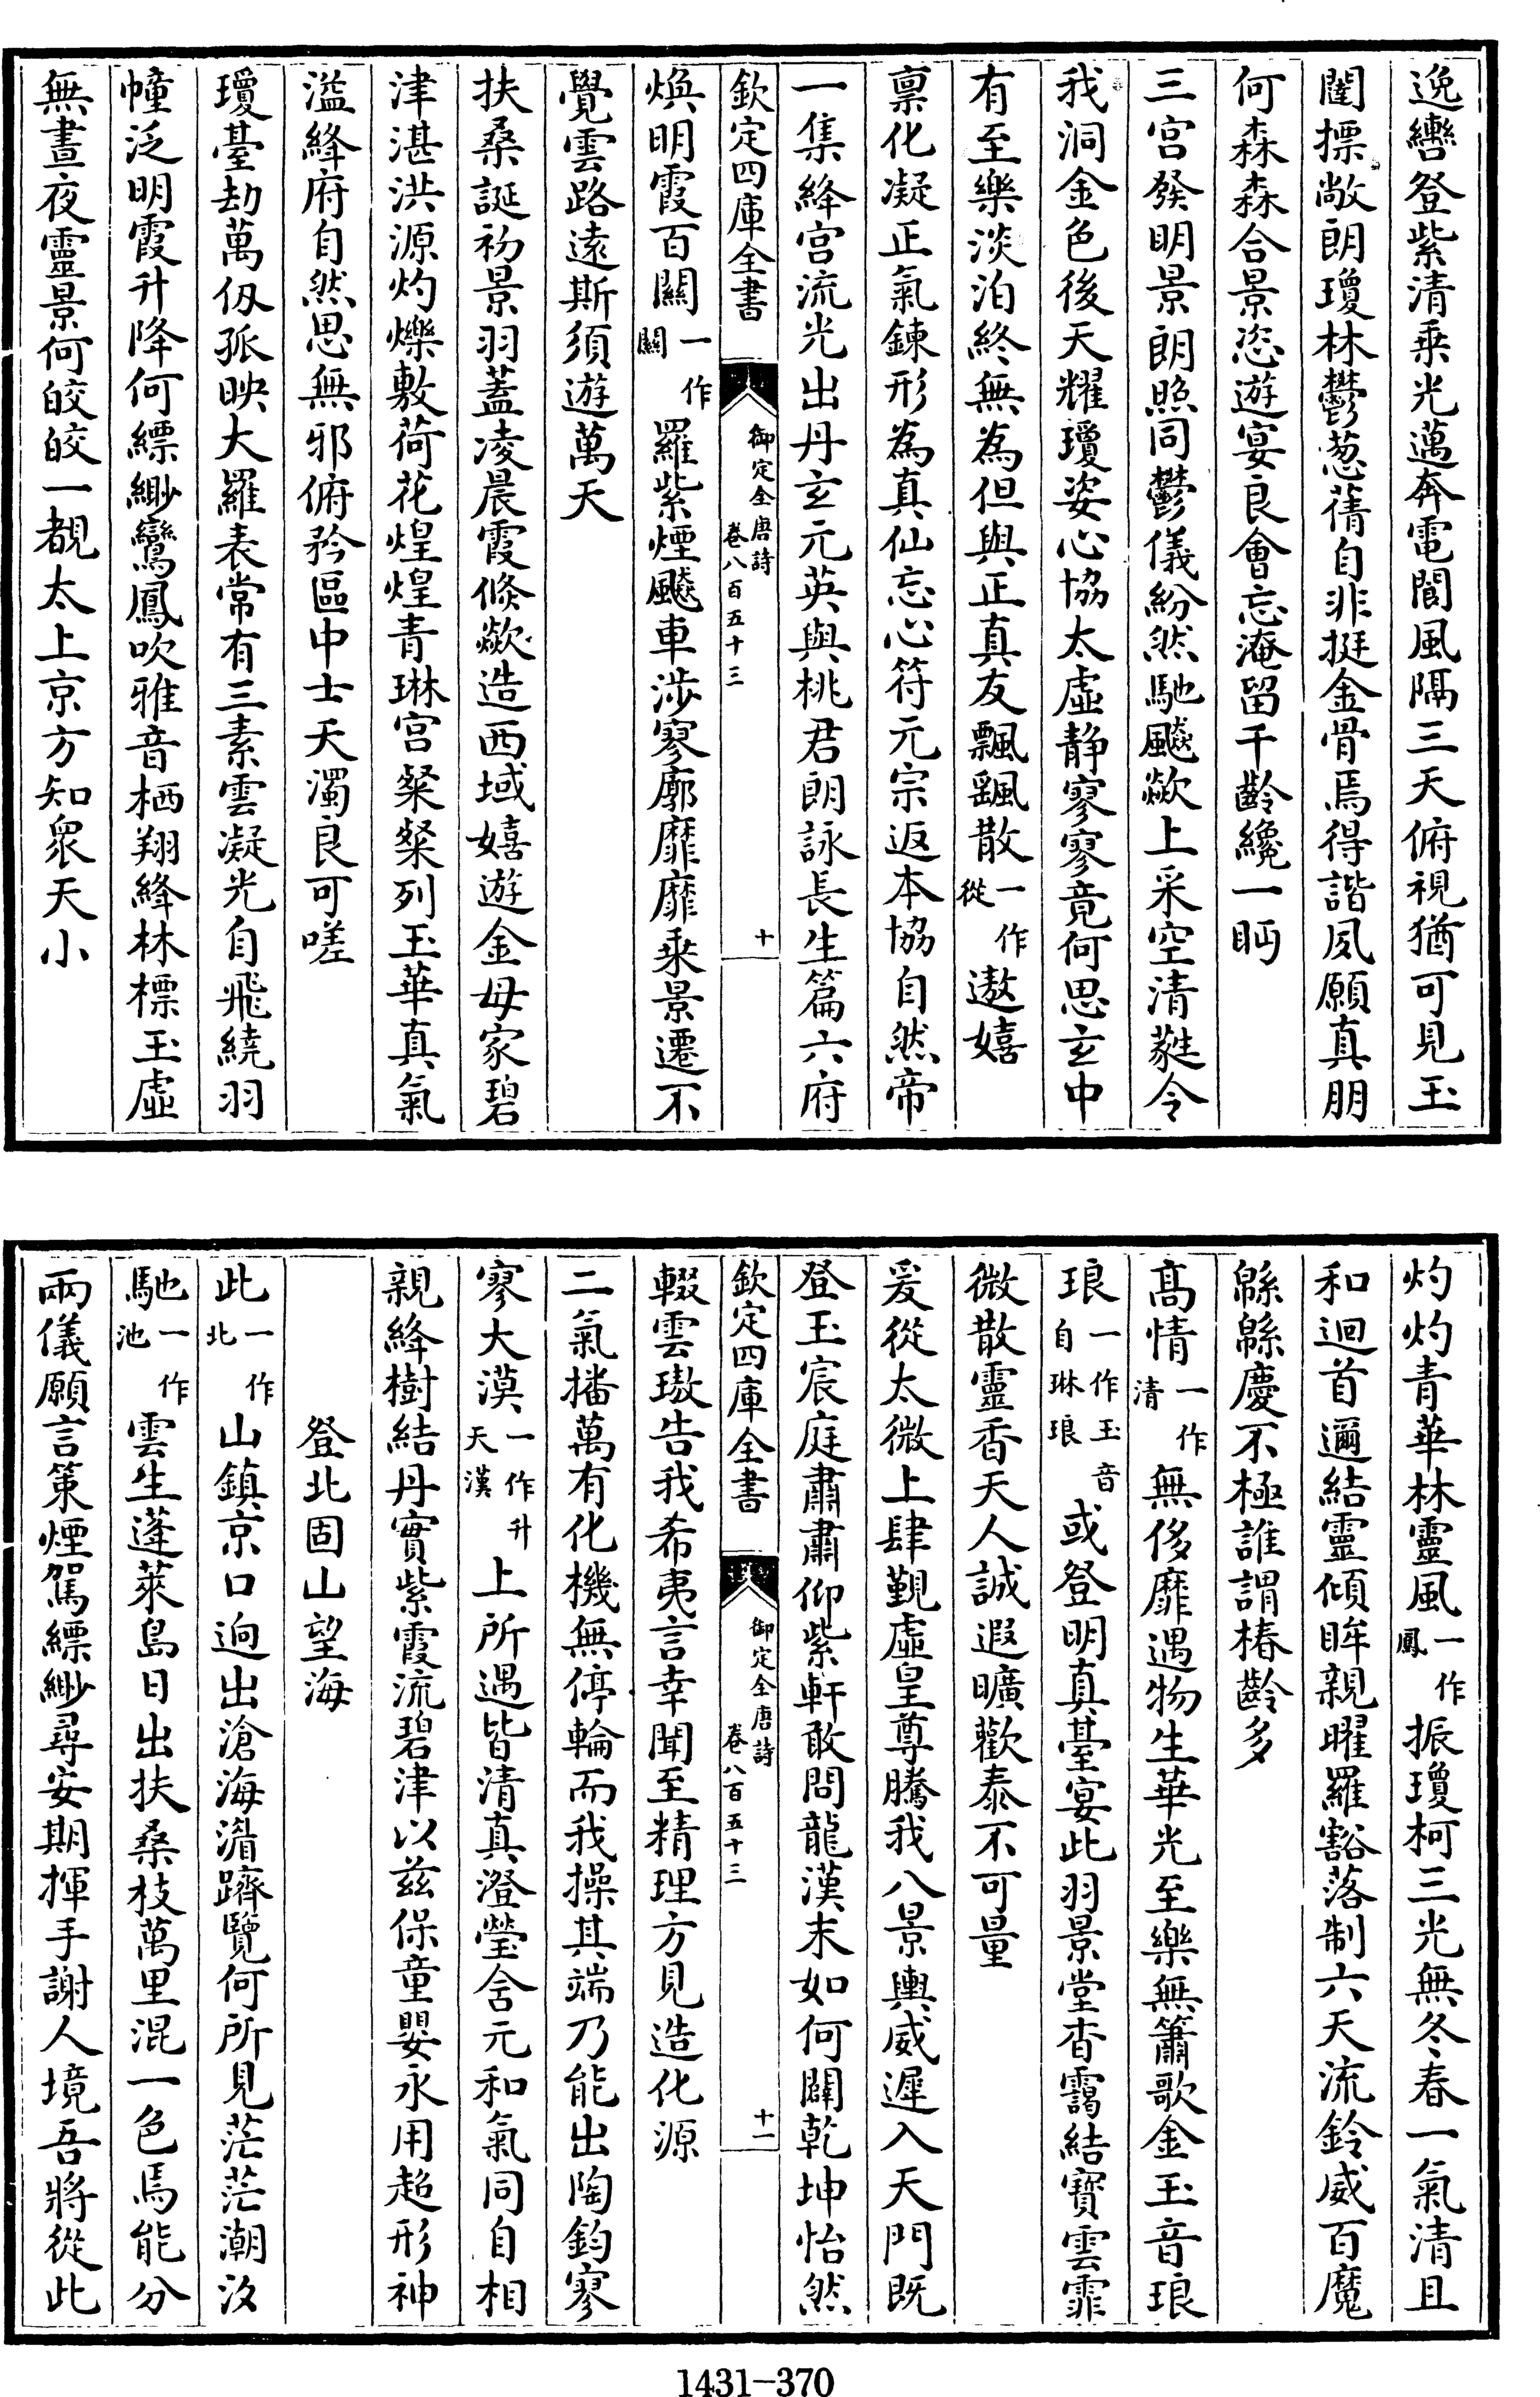 逸轡登紫清乘光邁奔電閬風隔三天俯視猶可見玉
闥摽敞朗瓊林鬱葱蒨自非挺金骨焉得諧夙願真朋
何森森合景恣遊宴良會忘淹留千齡纔一眄
三宫發明景朗照同鬱儀紛然馳飈歘上采空清蕤令
我洞金色後天耀瓊姿心協太虚静寥寥竟何思玄中
有至樂淡泊終無為但與正真友飄飖散一作從遨嬉
禀化凝正氣鍊形為真仙忘心符元宗返本協自然帝
一集絳宫流光出丹玄元英與桃君朗詠長生篇六府
欽定四庫全書 御定全唐詩卷八百五十三 十
煥明霞百關一作關羅紫煙飈車涉寥廓靡靡乘景遷不
覺雲路遠斯須遊萬天
扶桑誕初景羽蓋凌晨霞倏歘造西域嬉遊金母家碧
津湛洪源灼爍敷荷花煌煌青琳宫粲粲列玉華真氣
溢絳府自然思無邪俯矜區中士夭濁良可嗟
瓊臺劫萬仭孤映大羅表常有三素雲凝光自飛繞羽
幢泛明霞升降何縹緲鸞鳳吹雅音栖翔絳林標玉虚
無晝夜靈景何皎皎一覩太上京方知衆天小
灼灼青華林靈風一作鳳振瓊柯三光無冬春一氣清且
和迴首邇結靈傾眸親曜羅豁落制六天流鈴威百魔
緜緜慶不極誰謂椿齡多
髙情一作清無侈靡遇物生華光至樂無簫歌金玉音琅
琅一作玉音自琳琅或登明真臺宴此羽景堂杳靄結寳雲霏
微散靈香天人誠遐曠歡泰不可量
爰從太微上肆覲虚皇尊騰我八景輿威遲入天門既
登玉宸庭肅肅仰紫軒敢問龍漢末如何闢乾坤怡然
欽定四庫全書 御定全唐詩卷八百五十三 十一
輟雲璈告我希夷言幸聞至精理方見造化源
二氣播萬有化機無停輪而我操其端乃能出陶鈞寥
寥大漠一作升天漢上所遇皆清真澄瑩含元和氣同自相
親絳樹結丹實紫霞流碧津以兹保童嬰永用超形神
登北固山望海
此一作北山鎮京口迥出滄海湄躋覽何所見茫茫潮汐
馳一作池雲生蓬萊島日出扶桑枝萬里混一色焉能分
兩儀願言策煙駕縹緲尋安期揮手謝人境吾將從此
1431-370